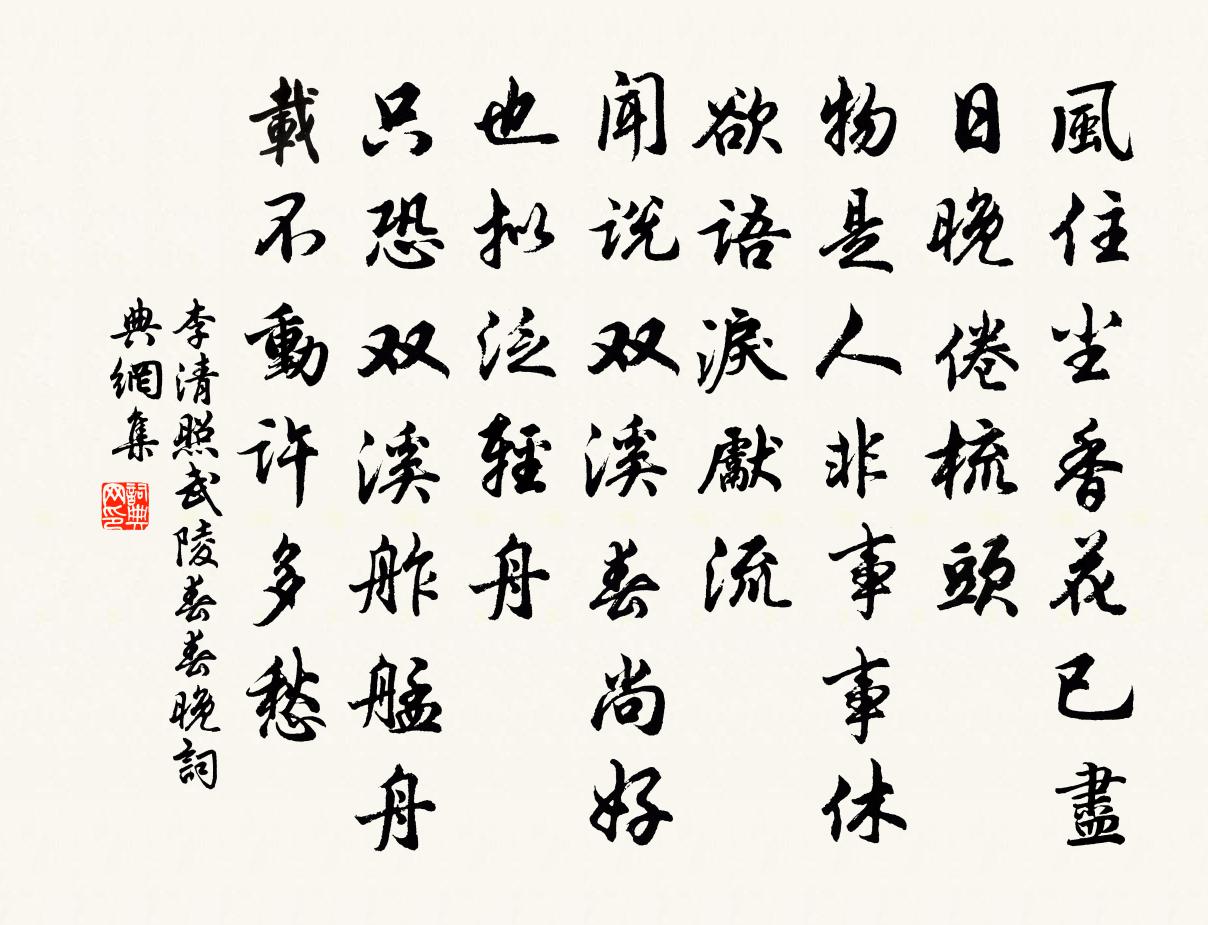 風住尘香花已盡
日晚倦梳頭
物是人非事事休
欲語淚獻流
闻说双溪春尚好
也拟泛輕舟
只恐双溪舴艋舟
載不動許多愁
李清照武陵春春晚詞
典網集
詞典
网印